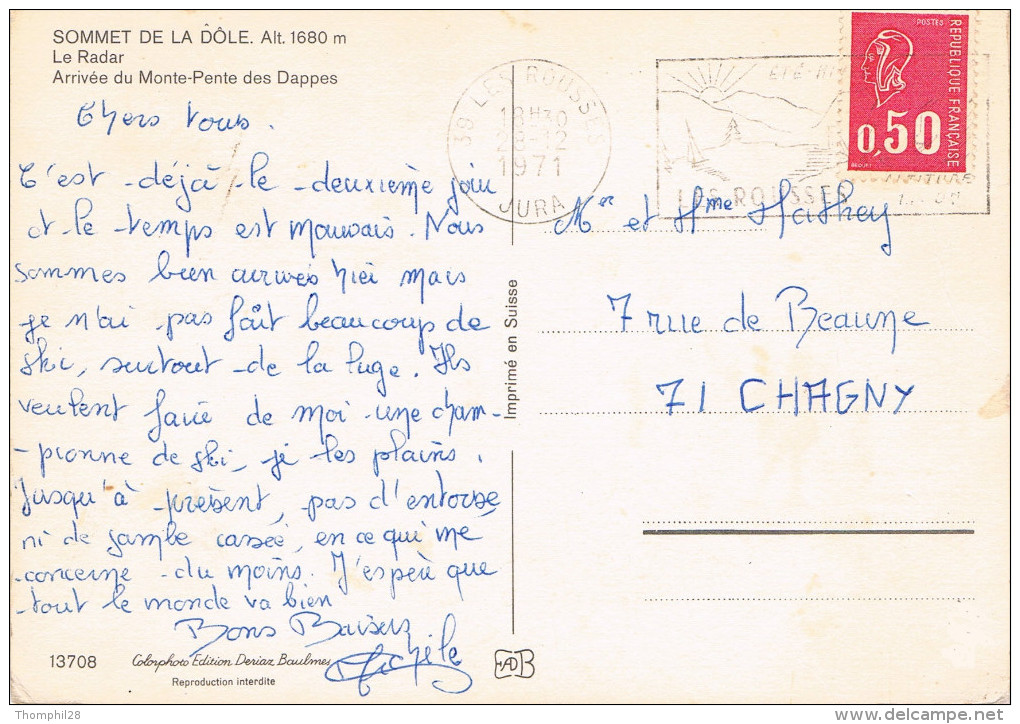 SOMMET DE LA DÔLE. Alt. 1680 m
Le Radar
Arrivée du Monte-Pente des Dappes
Chers tous.
C'est déjà le deuxième jour
et le temps est mauvais. Nous
sommes bien arrivés hier mais
je n'ai pas fait beaucoup de
ski, surtout de la luge. Ils
veulent faire de moi une cham-
-pionne de ski, je les plains.
Jusqu'à présent, pas d'entorse
ni de jambe cassée, en ce qui me
concerne du moins. J'espère que
tout le monde va bien
Bons Baisers
Michèle
13708
Colorphoto Edition Deriaz Baulmes
Reproduction interdite
Imprimé en Suisse
39 LES ROUSSES
18H30
-12
1971
JURA
ÉTÉ-HI
LES ROUSSES
POSTES
REPUBLIQUE FRANÇAISE
0,50
BEQUET
Mr et Mme Mathey
7 rue de Beaune
71 CHAGNY
Thomphil28
delcampe.net